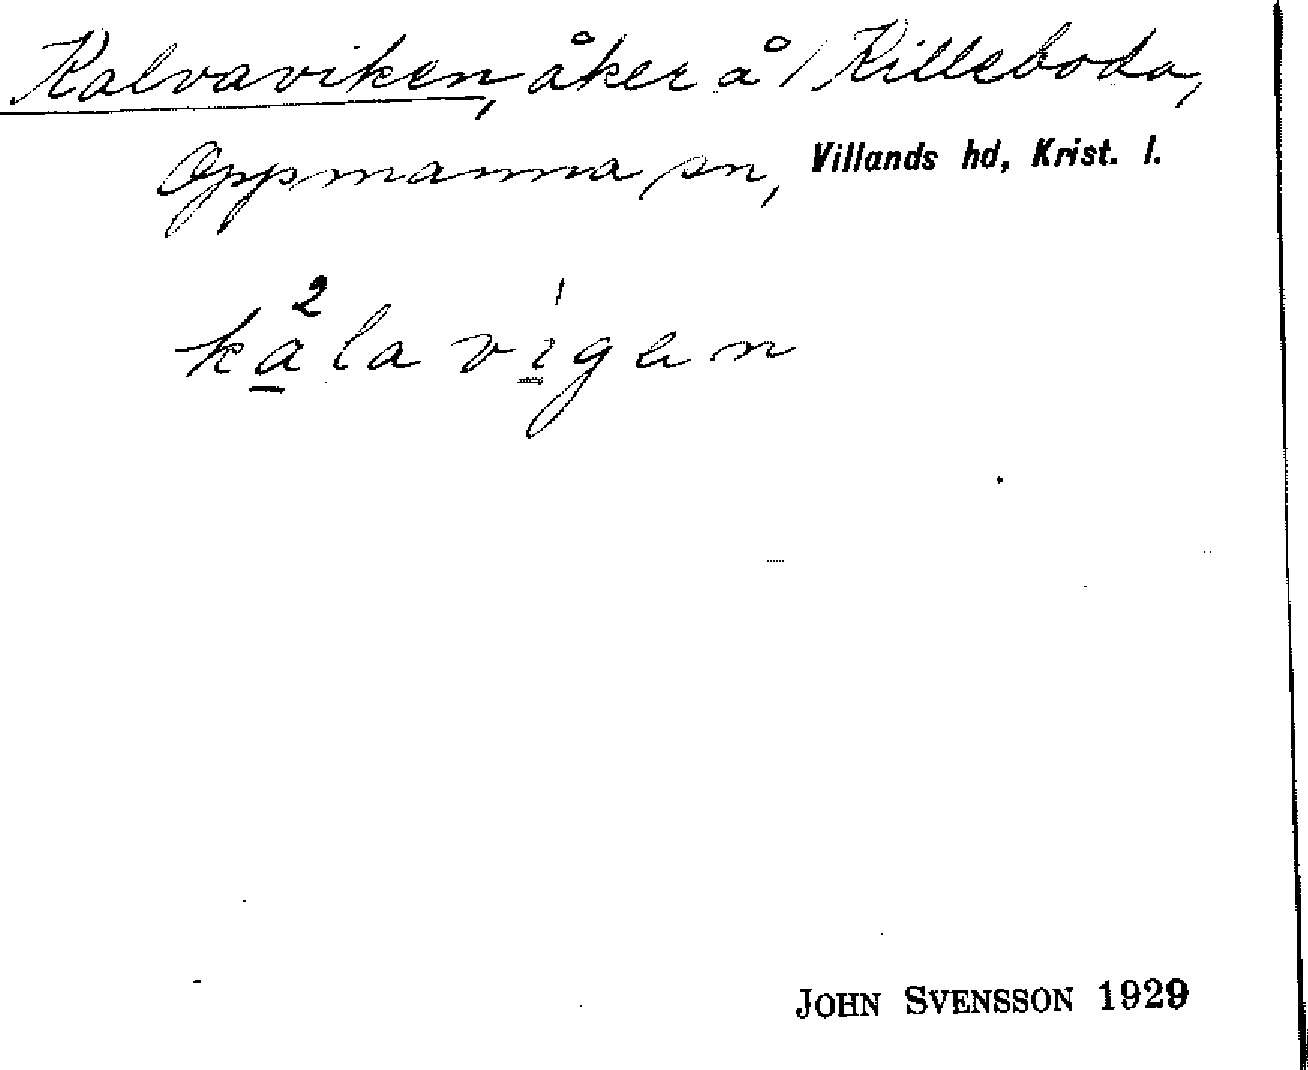 Kalvaviken, åker å / Killeboda,
Oppmanna sn, Villands hd, Krist. l.
ka²lavi¹gen
JOHN SVENSSON 1929